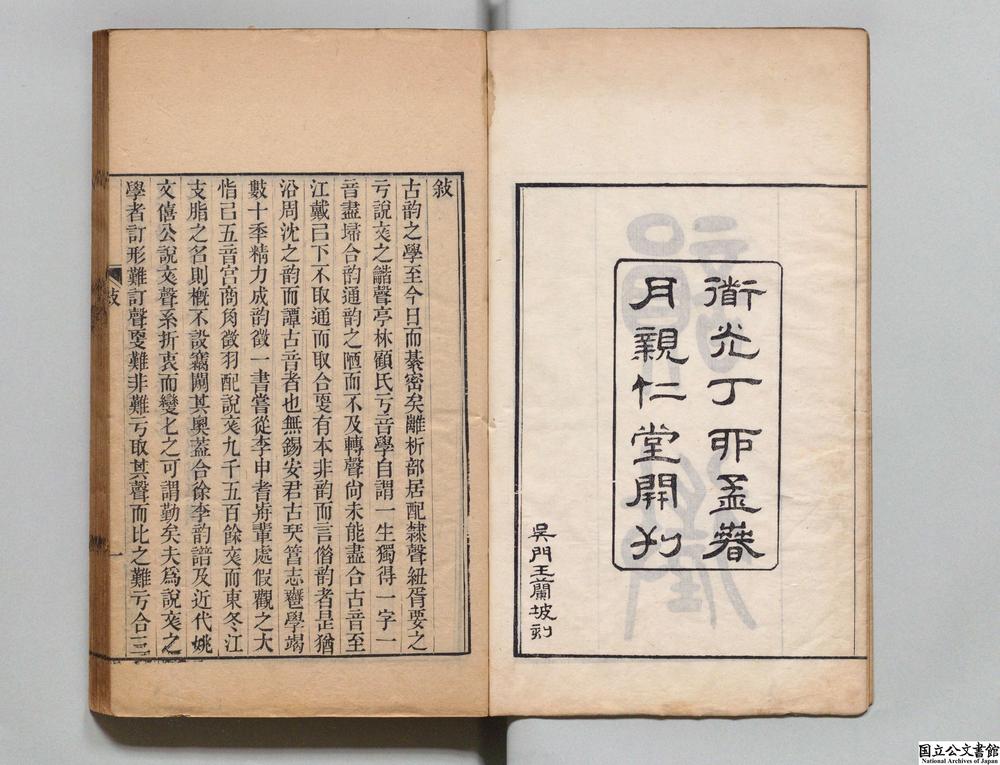 衜光丁丣孟萅
月親仁堂開刋
吳門王蘭坡刻
敍
古韵之學至今日而綦密矣離析部居配隸聲紐胥要之
亏說文之龤聲亭林顧氏亏音學自謂一生獨得一字一
音盡埽合韵通韵之陋而不及轉聲尙未能盡合古音至
江戴㠯下不取通而取合㪅有本非韵而言俗韵者昰猶
沿周沈之韵而譚古音者也無錫安君古琹篤志韾學竭
數十季精力成韵徵一書嘗從李申耆歬輩處假觀之大
恉㠯五音宮商角徵羽配說文九千五百餘文而東冬江
支脂之名則槪不設竊闚其奧葢合徐李韵譜及近代姚
文僖公說文聲系折衷而變匕之可謂勤矣夫爲說文之
學者訂形難訂聲㪅難非難亏取其聲而比之難亏合三
敍
一
国立公文書館
National Archives of Japan